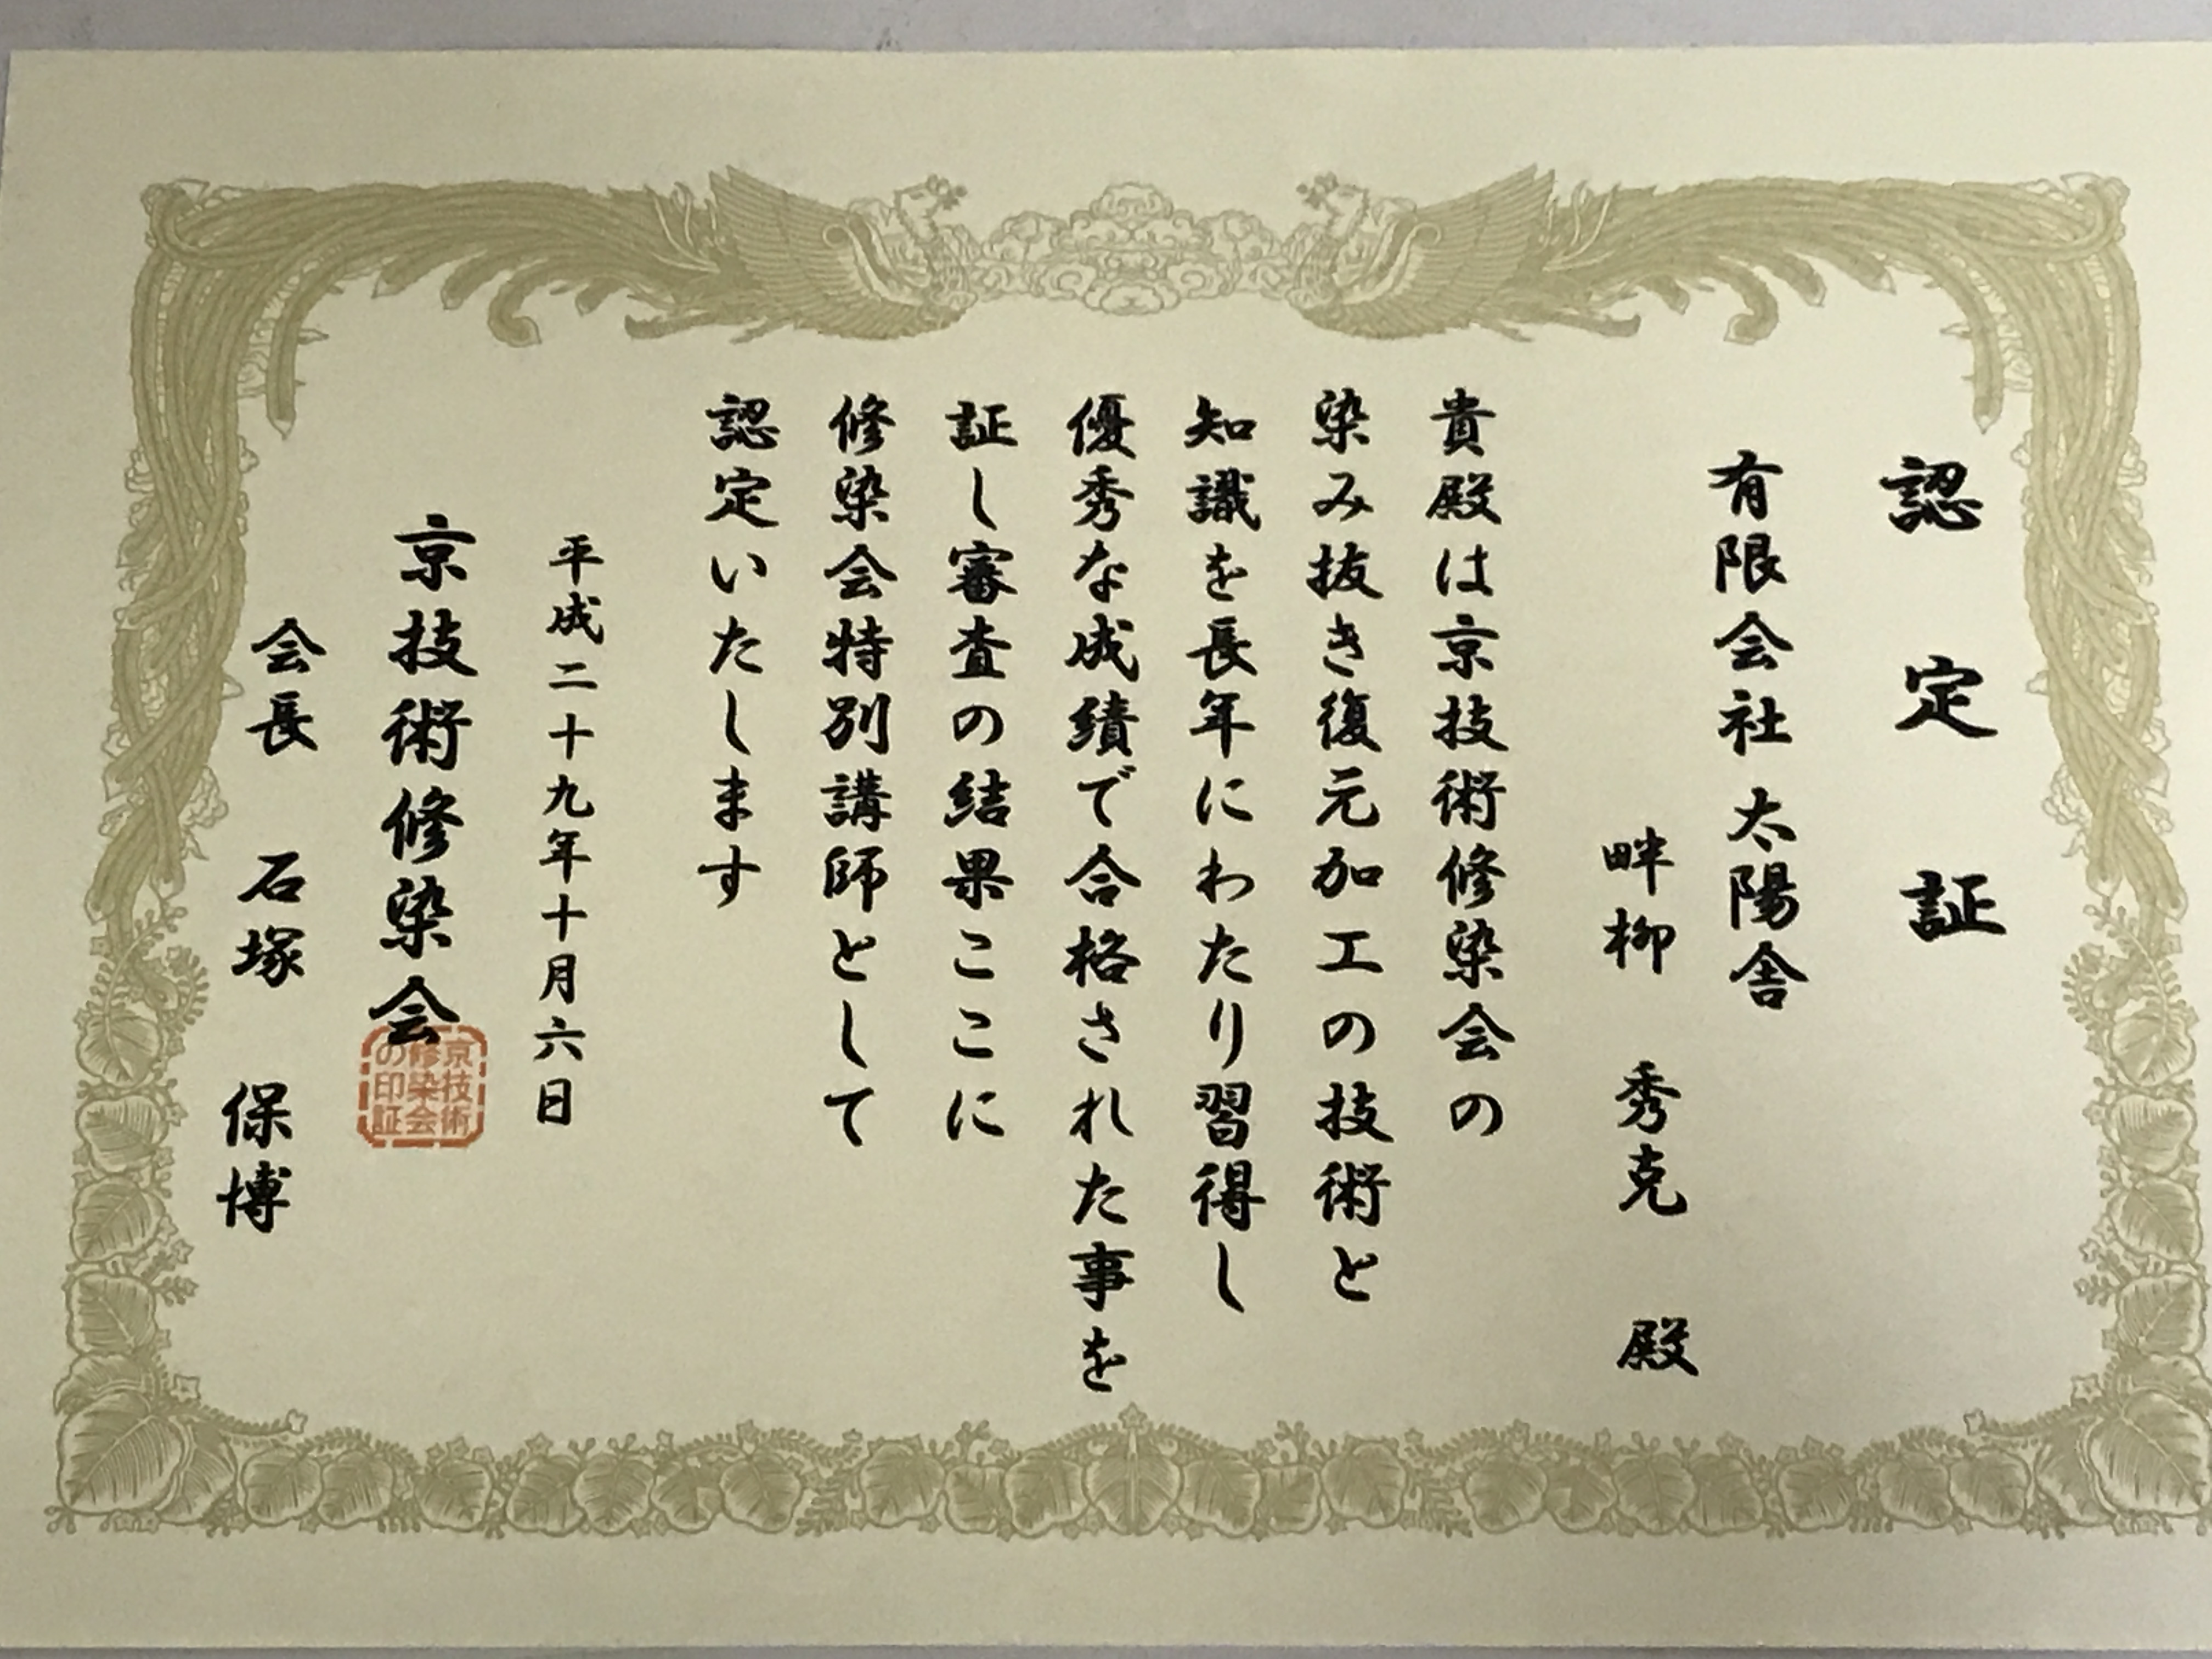 認定証
有限会社 太陽舎
畔柳 秀克 殿
貴殿は京技術修染会の
染み抜き復元加工の技術と
知識を長年にわたり習得し
優秀な成績で合格された事を
証し審査の結果ここに
修染会特別講師として
認定いたします
平成二十九年十月六日
京技術修染会
京技術
修染会
の印証
会長 石塚 保博